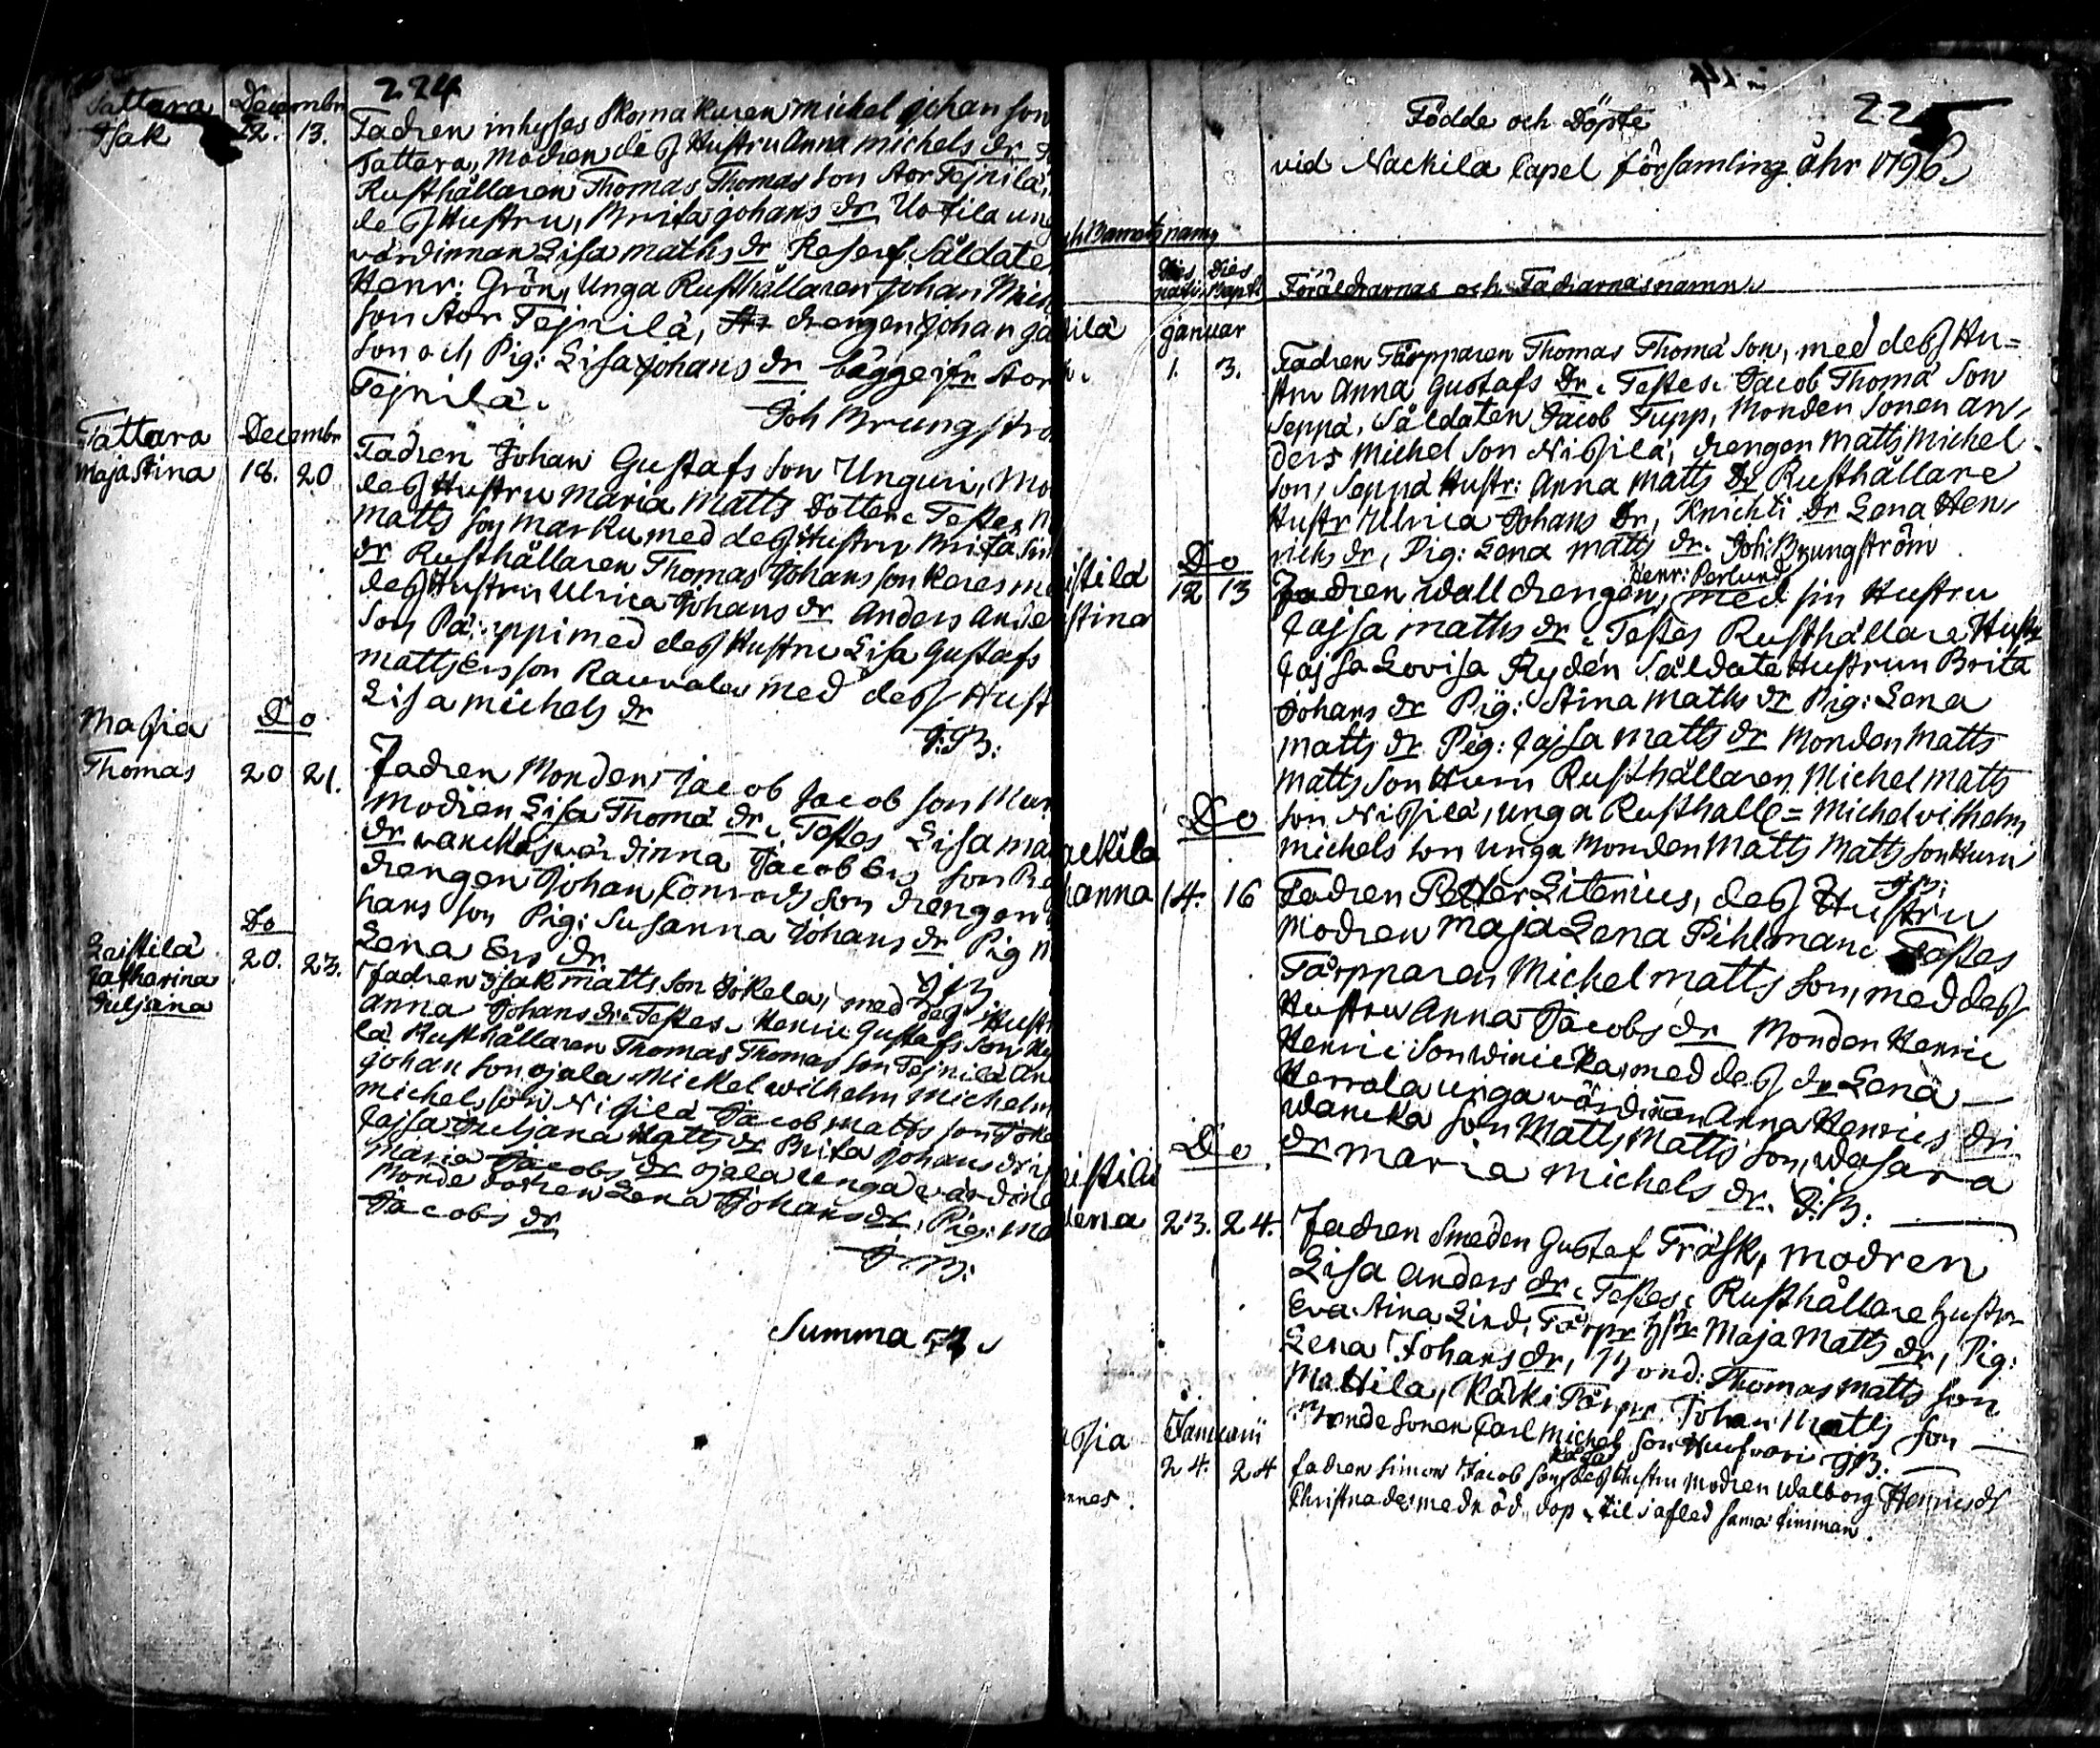 224
Tattara Decembr
Isak 12. 13. Fadren inhyses Skomakaren Michel Johan son
Tattara, Modren deß Hustru Anna Michels dr
Rusthållaren Thomas Thomas Son Stor Tejnilä,
deß Hustru, Brita Johans dr Uotila unga
värdinnan Lisa Maths dr Reserf Såldate
Henr: Grön, Unga Rusthållaren Johan Mich
son Stor Tejnilä, drengen Johan
son och Pig: Lisa Johans dr bägge ifr Stor
Tejnilä.
Joh Brungströ
Tattara Decembr
Maja Stina 18. 20 Fadren Johan Gustafs Son Unguri, Mo
deß Hustru Maria Matts Dotter. Testes
Matts son Marku med deß Hustru Brita Sim
dr Rusthållaren Thomas Johans son Keres me
deß Hustru Ulrica Johans dr Anders Ande
son Päippi med deß Hustru Lisa Gustafs
Matts Ers son Rauvala med deß Hust
Lisa Michels dr
J:B:
Masia Do
Thomas 20 21. Fadren Monden Jacob Jacob son
Modren Lisa Thoma dr. Testes Lisa ma
dr värdinna Jacob Ers son
drengen Johan Conrads Son drengen
hans son Pig: Susanna Johans dr Pig
Lena Ers dr
JB
Do
Leistilä 20. 23. Fadren Isak Matts Son Sokela, med deß Hustr
Catharina Anna Johans dr. Testes. Henric Gustafs Son
Juljana lä Rusthållaren Thomas Thomas son Tejnilä
Johan son Ojala Mickel Wilhelm Michelm
Michels son Nißilä Jacob Matts son
Cajsa Juljana Matts dr Brita Johans dr
Maria Jacobs dr Ojala unga värdin
Monde dottren Lena Johans dr, Pig: Ma
Jacobs dr
J:B:
Summa
225
Födde och Döpte
vid Nackila Capel församling åhr 1796.
h Barnets namn
Dies nativ Dies Bapt: Föräldrarnas och Fadrarnas namn
ilä Januar
1. 3. Fadren Torpparen Thomas Thoma Son, med deß Hu=
stru Anna Gustafs Dr. Testes. Jacob Thoma Son
Seppä, Såldaten Jacob Tupp, Monden Sonen An
ders Michel Son Nißilä, drengen Matts Michel
Son, Seppä Hustr: Anna Matts Dr Rusthållare
Hustr Ulrica Johans Dr, Knichti Dr Lena Hen
richs dr, Pig: Lena Matts dr. Joh: Brungström
istilä Do Henr: Perlund
stina 12 13 Fadren Walldrengen, med sin Hustru
Cajsa Maths dr. Testes Rusthållare Hustr
Cajsa Lovisa Rydén Såldate Hustrun Brita
Johans dr Pig: Stina Maths dr Pig: Lena
Matts dr Pig: Cajsa Matts dr Monden Matts
Matts son Hurri Rusthållaren Michel Matts
son Nißilä, unga Rusthåll= Michel Vilhelm
Michels Son unga Monden Matts Matts Son Hurri
JB:
ackila Do
hanna 14. 16 Fadren Petter Litenius, deß Hustru
Modren Maja Lena Pihlman. Testes
Torpparen Michel Matts Son, med deß
Hustru Anna Jacobs dr Monden Henric
Henric Son Winicka, med deß dr Lena
Herrala unga värdinnan Anna Henrics dr
Wancka son Matts Matts son, Wasara
dr Maria Michels dr. J:B:
eistilä Do
lena 23. 24. Fadren Smeden Gustaf Träsk, Modren
Lisa Anders dr. Testes. Rusthållare hustr
Eva Stina Lind, Torpr hstr Maja Matts dr, Pig:
Lena Johans dr, Mond: Thomas Matts Son
Mattila, Kärki Torpr Johan Matts Son
Monde Sonen Carl Michels Son Hurri JB:
aßia Januarii
nnes. 24. 24 Fadren Simon Jacob Son deß Hustru Modren Walborg Henrics dr
Christnades med nöd dop til s afled sama timman.